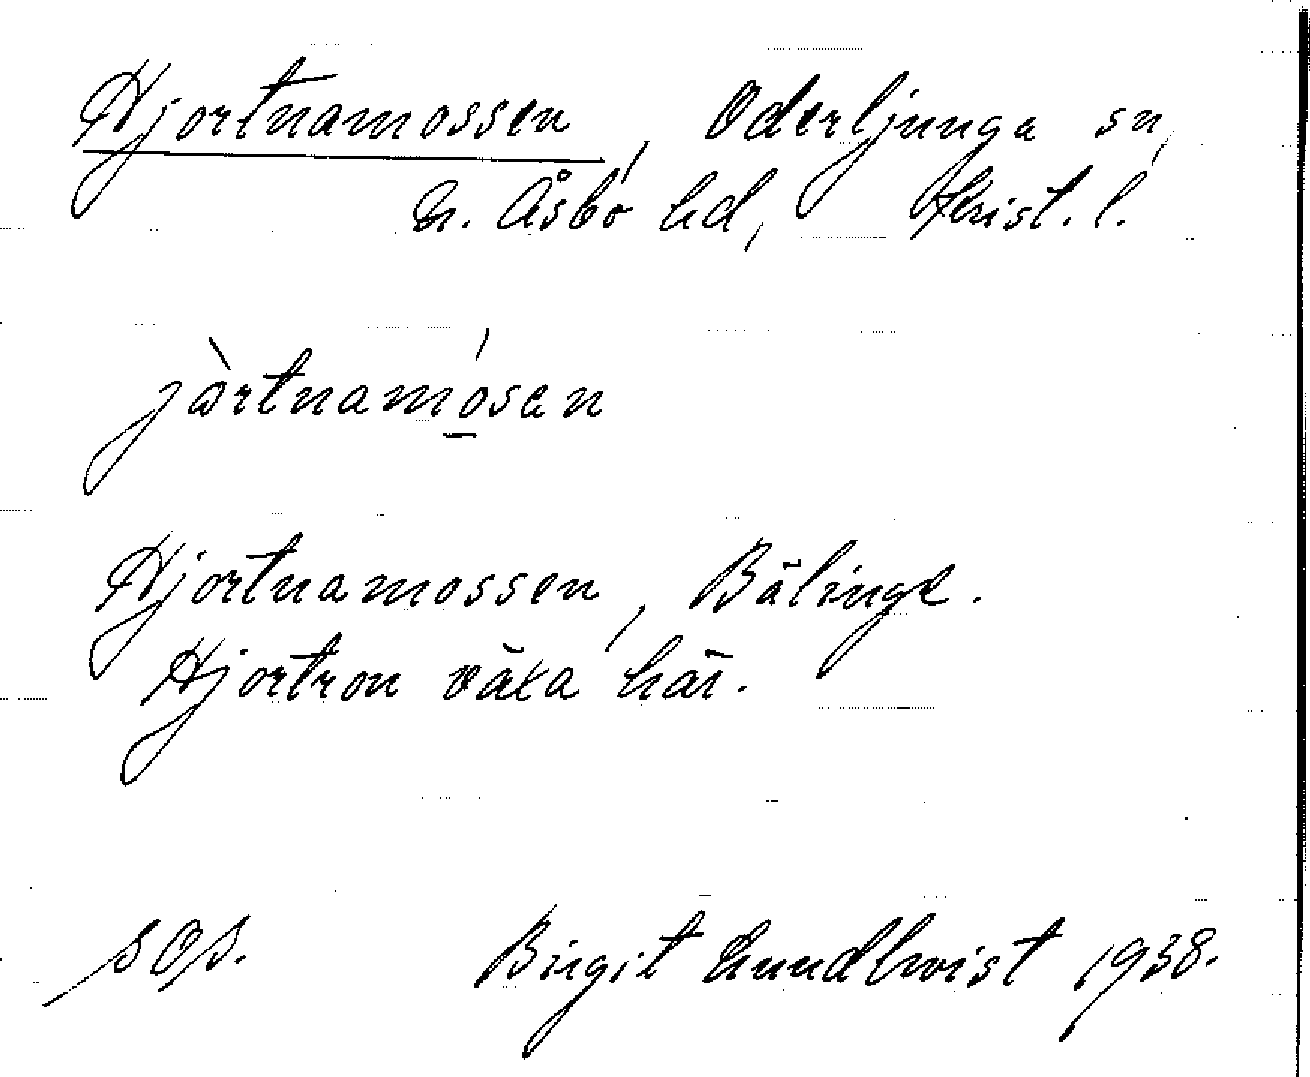 Hjortnamossen, Oderljunga sn,
N. Åsbo hd, Krist. l.
jàrtnamósen
Hjortnamossen, Bälinge.
Hjortron växa här.
SOS. Birgit Lundkvist 1938.